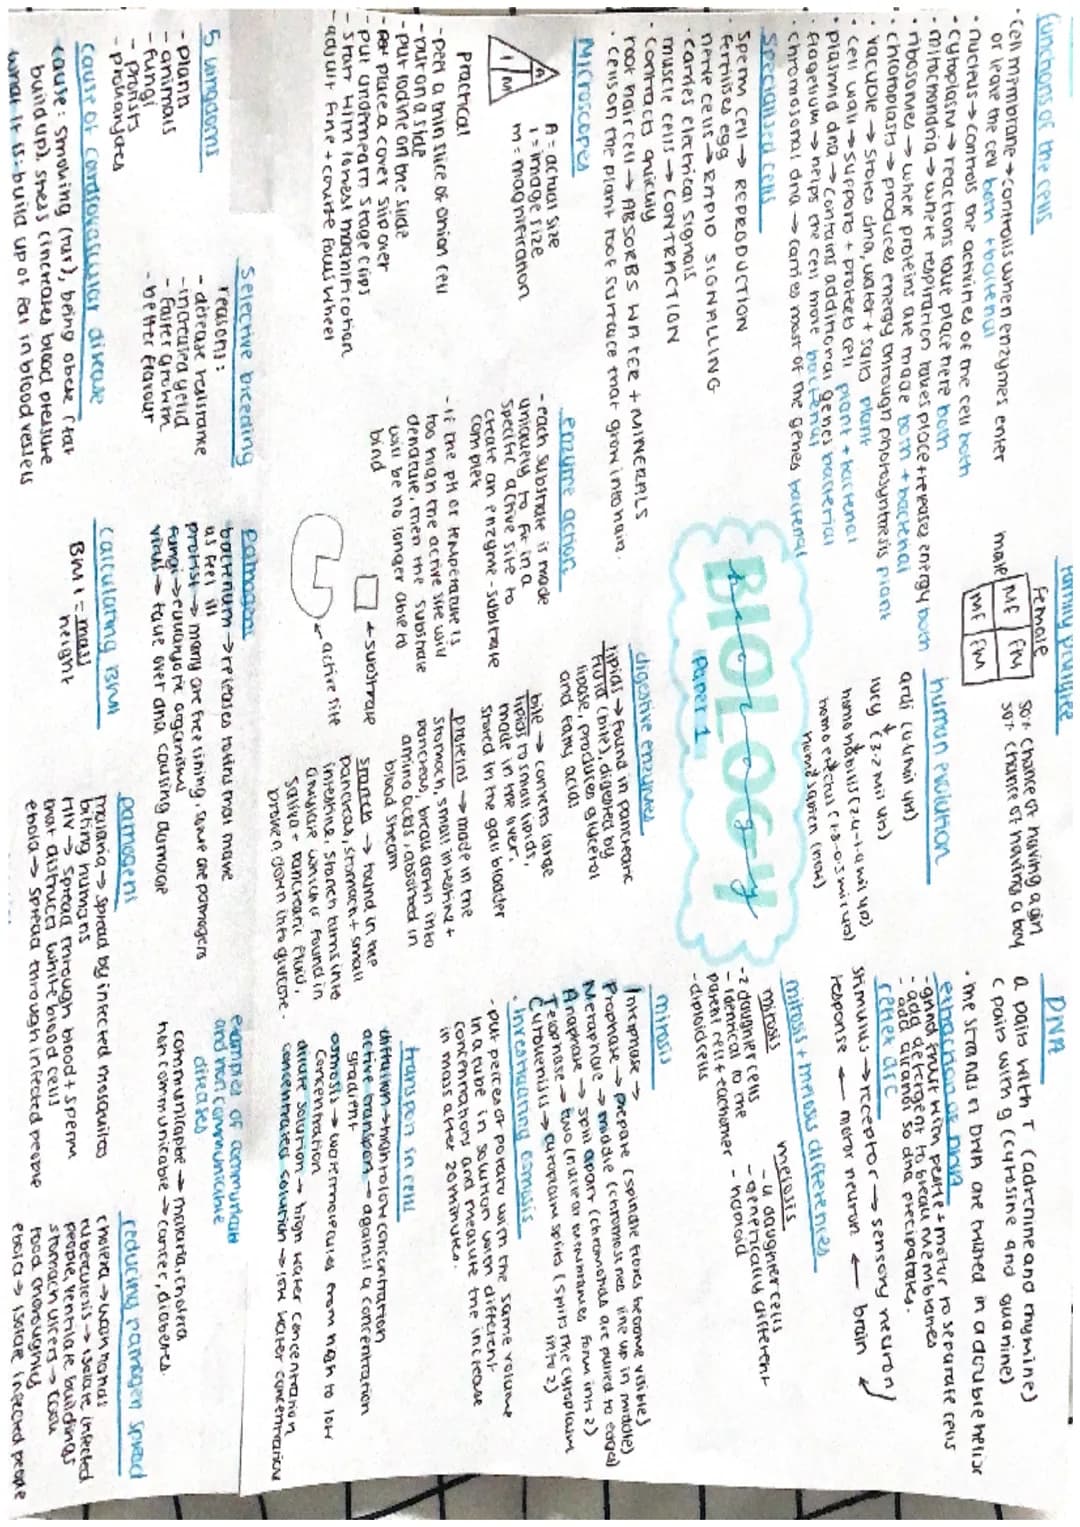 functions of the cells
· cell membrane → controlls when enzymes enter
or leave the cell both + bacterial
· nucleus → controls the activities of the cell both
· cytoplasm → reactions take place here both
· mitochondria → where respiration takes place + releases energy both
· ribosomes → where proteins are made both + bacterial
· chloroplasts → produces energy through photosynthesis plant
· vacuole → stores dna, water + salts plant
· cell wall → supports + protects cell plant + bacterial
· plasmid dna → contains additional genes bacterial
· flagellum → helps the cell move bacterial
· chromosomal dna → carries most of the genes bacterial
specialised cells
sperm cell → REPRODUCTION
· fertilises egg
nerve cells → RAPID SIGNALLING
· carries electrical signals
muscle cells → CONTRACTION
· contracts quickly
root hair cell → ABSORBS WATER + MINERALS
· cells on the plant root surface that grow into hair.
Microscopes
A = actual size
I = image size
m = magnification
practical
- peel a thin slice of onion cell
- put on a slide
- put iodine on the slide
- place a cover slip over
- put underneath stage clips
- start with lowest magnification
- adjust fine + coarse focus wheel
5 kingdoms
- plants
- animals
- fungi
- protists
- prokaryotes
cause of cardiovascular disease
cause: smoking (tar), being obese (fat
build up), stress (increases blood pressure
what it is: build up of fat in blood vessels
family pedigree
female
male
MF FM
MF FM
50% chance of having a girl
50% chance of having a boy
human evolution
ardi (4.4 mil yrs)
lucy (3.2 mil yrs)
homo habilis (2.4-1.4 mil yo)
homo erectus (1.8-0.5 mil yrs)
homo sapien (now)
BIOLOGY
biology
Paper 1
enzyme action
- each substrate is made
uniquely to fit in a
specific active site to
create an enzyme-substrate
complex
- if the pH or temperature is
too high the active site will
denature, then the substrate
will be no longer able to
bind
← substrate
← active site
digestive enzymes
lipids → found in pancreatic
fluid (bile), digested by
lipase, produces glycerol
and fatty acids
bile → converts large
lipids to small lipids,
made in the liver,
stored in the gall bladder
proteins → made in the
stomach, small intestine +
pancreas, break down into
amino acids, absorbed in
blood stream
starch → found in the
pancreas, stomach + small
intestine, starch turns into
amylase which is found in
saliva + pancreatic fluid,
broken down into glucose.
selective breeding
reasons:
- disease resistance
- increased yeild
- faster growth
- better flavour
pathogens
bacterium → releases toxins that make
us feel ill
protist → many are free living, some are pathogens
fungi → eukaryotic organisms
virus → take over and causing damage
calculating BMI
BMI = mass
height
pathogens
malaria → spread by infected mosquitos
biting humans
HIV → spread through blood + sperm
that distructs white blood cells
ebola → spread through infected people
DNA
a pairs with T (adenine and thymine)
c pairs with g (cytosine and guanine)
· the strands in DNA are twisted in a double helix
extraction of DNA
- grind fruit with pestle + mortar to separate cells
- add detergent to break membranes
- add alcohol so dna precipitates.
reflex arc
stimulus → receptor → sensory neuron
response ← motor neuron ← brain
mitosis + meiosis differences
mitosis
- 2 daughter cells
- identical to the
parent cell + eachother
- diploid cells
meiosis
- 4 daughter cells
- genetically different
- haploid
mitosis
Interphase →
Prophase → prepare (spindle fibres become visible)
Metaphase → middle (chromosomes line up in middle)
Anaphase → split apart (chromatids are pulled to edges)
Telophase → two (nuclear membranes form into 2)
Cytokenisis → cytoplasm splits (splits the cytoplasm
into 2)
· investigating osmosis
- put peices of potato with the same volume
in a tube in solution with different
concentrations and measure the increase
in mass after 20 minutes.
transport in cells
diffusion → high to low concentration
active transport → against a concentration
gradient
osmosis → water molecules from high to low
concentration
dilute solution → high water concentration
concentrated solution → low water concentration
examples of communicable
and non communicable
diseases
communicable → malaria, cholera
non communicable → cancer, diabetes.
reducing pathogen spread
cholera → wash hands
tuberculosis → isolate infected
people, ventilate buildings
stomach ulcers → cook
food thoroughly
ebola → isolate infected people